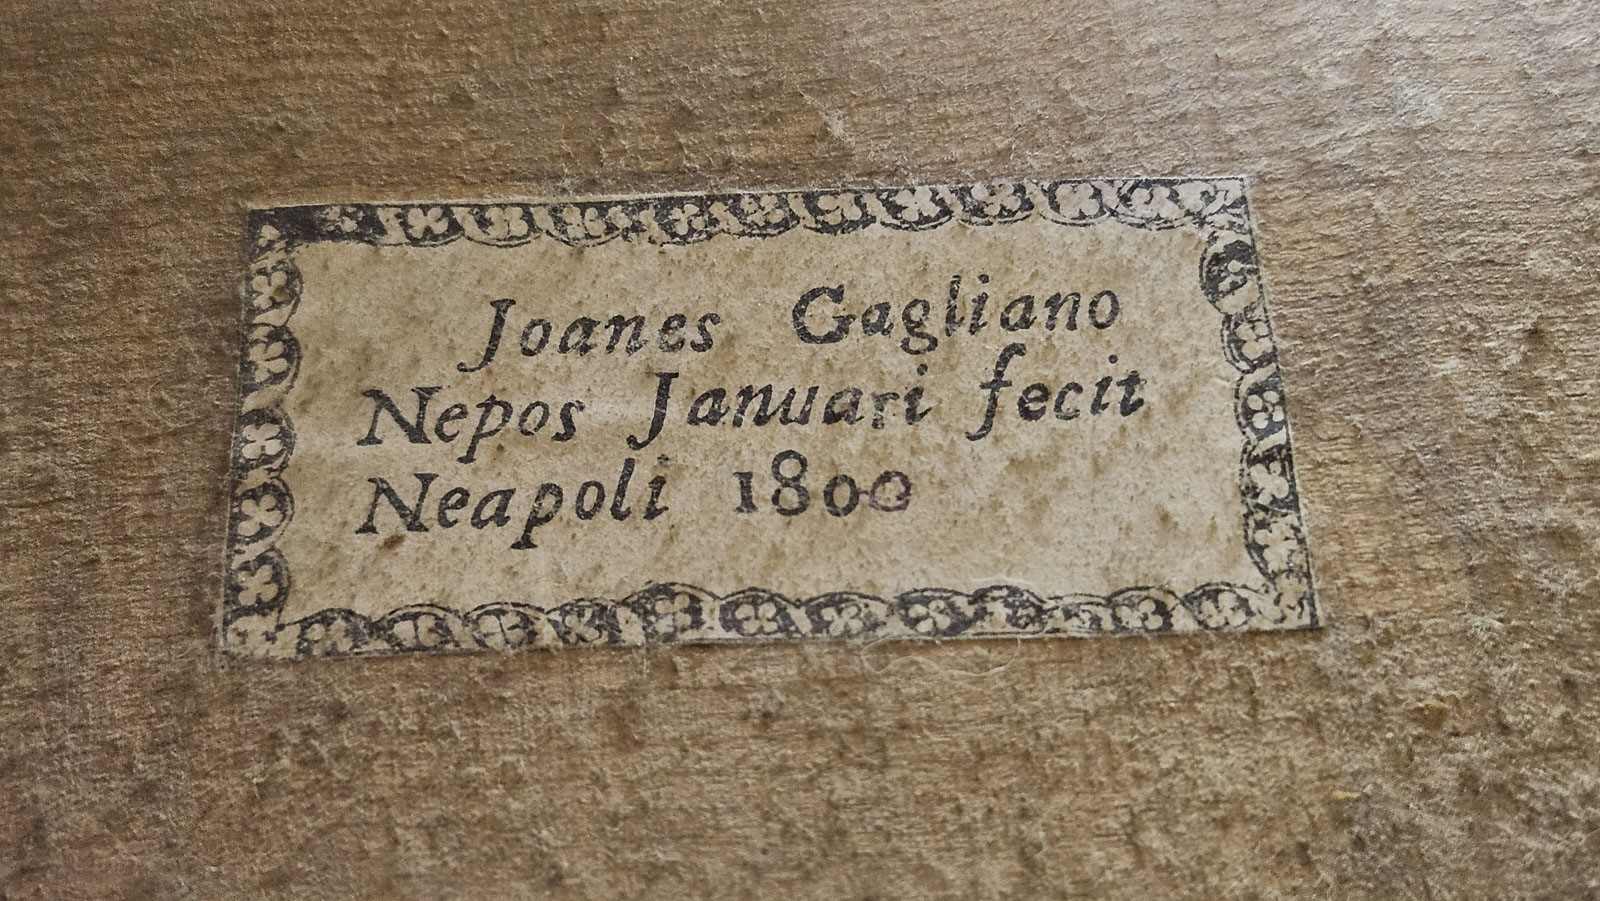 Joanes Gagliano
Nepos Januari fecit
Neapoli 1800